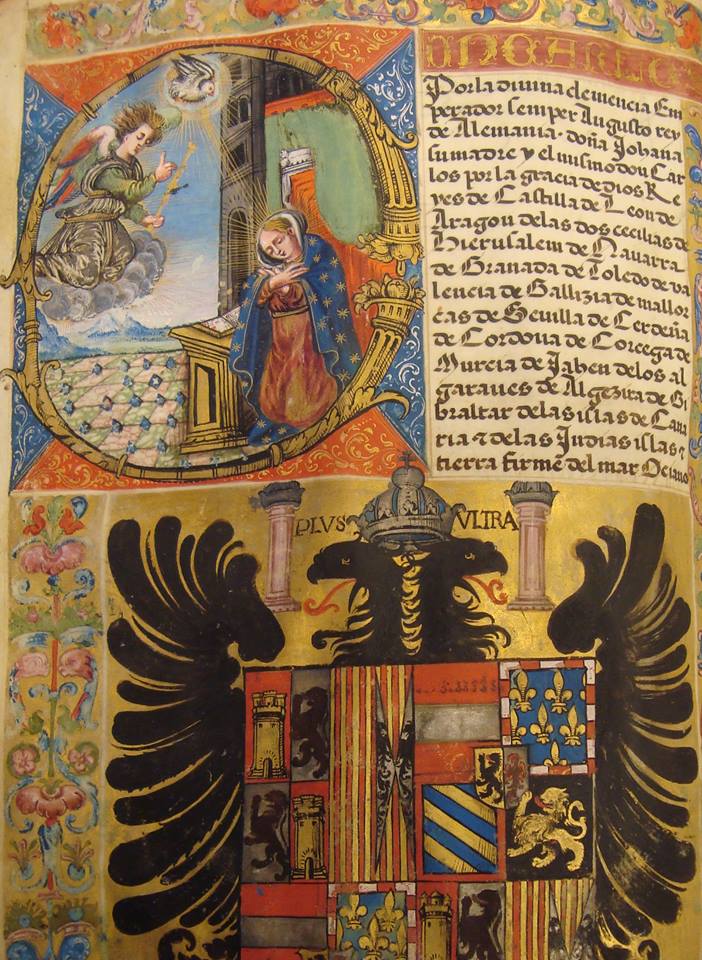 ON CARLOS
Por la divina clemencia Em
perador semper Augusto rey
de Alemania. doña Johana
su madre y el mismo don Car
los por la gracia de dios Re
yes de Castilla de Leon de
Aragon de las dos cecilias de
Hierusalem de Navarra
de Granada de Toledo de va
lencia de Gallizia de mallor
cas de Sevilla de Cerdeña
de Cordova de Corcega de
Murcia de Jahen de los al
garaves de Algezira de Gi
braltar de las islas de Cana
ria ⁊ de las Indias islas ⁊
tierra firme del mar Oceano
PLVS VLTRA